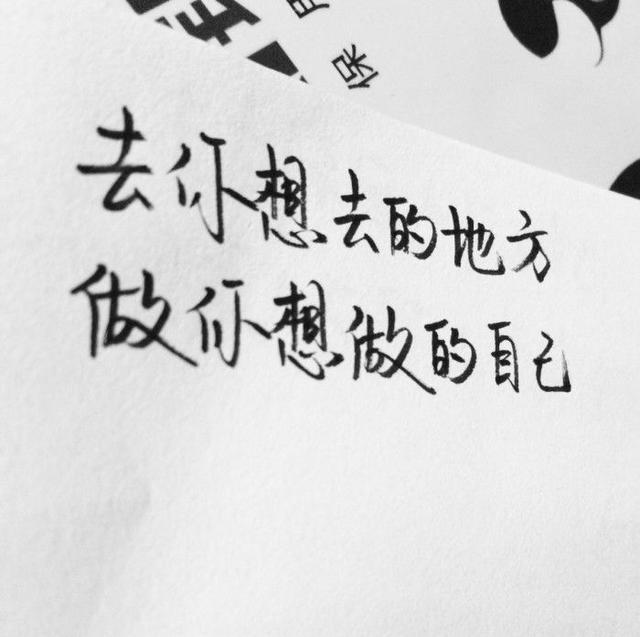 去你想去的地方
做你想做的自己